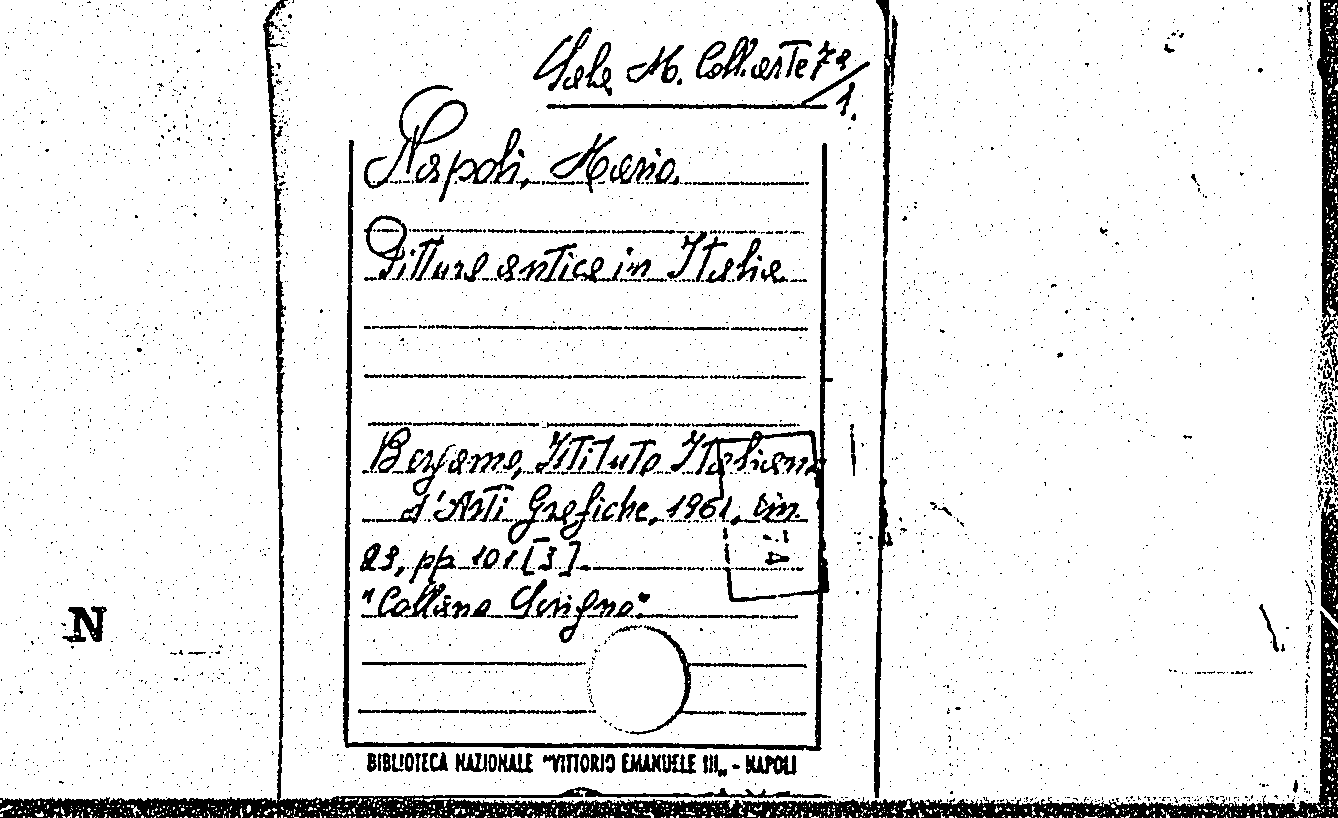 Sala M. Coll. arte 72/1.
Napoli, Mario.
Pittura antica in Italia.
Bergamo, Istituto Italiano
d'Arti Grafiche, 1961, cm.
23, pp. 101 [3].
"Collana Scrigno".
N
BIBLIOTECA NAZIONALE "VITTORIO EMANUELE III„ - NAPOLI